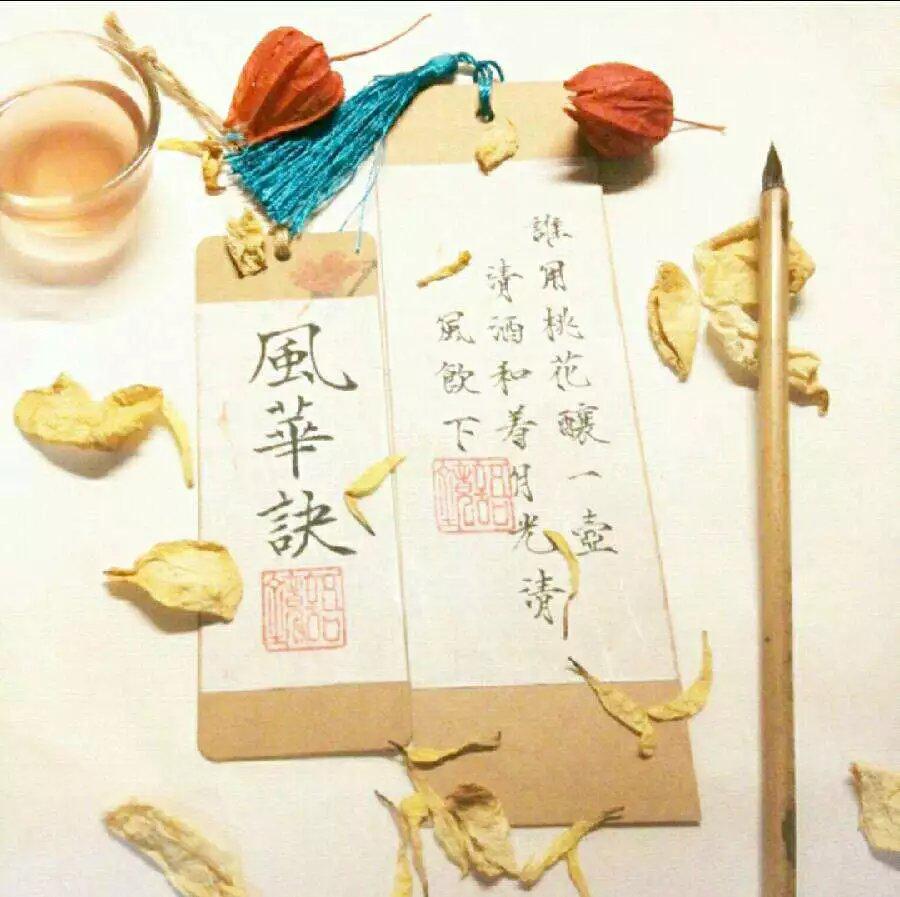 風華訣
誰用桃花釀一壺
清酒和着月光清
風飲下